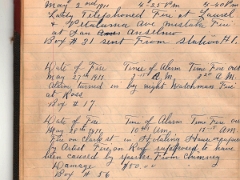 May 2nd 1911 4.25 P.m 5.40 P.m
Lately Telephoned Fire at Laurel
& Petaluma Ave mistake Fire
at San Anselmo
Box # 31 sent From station # 1.
Date of Fire Time of Alarm Time Fire out
May 27th 1911. A.M. A.M.
Alarm turned on by night Watchman Fire
at Ross
Box # 17
Date of Fire Time of Alarm Time Fire out
May 30th 1911. 10 A.M. 11 A.M.
Fire on Clark st in dwelling House occupied
by Fire on Roof supposed to have
been caused by sparks From chimney
Damage $50.00
Box # 56